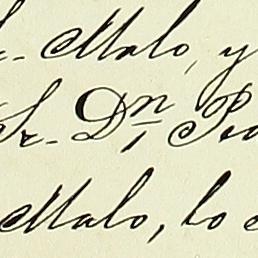 Malo, y
Sr. Dn
Malo, lo